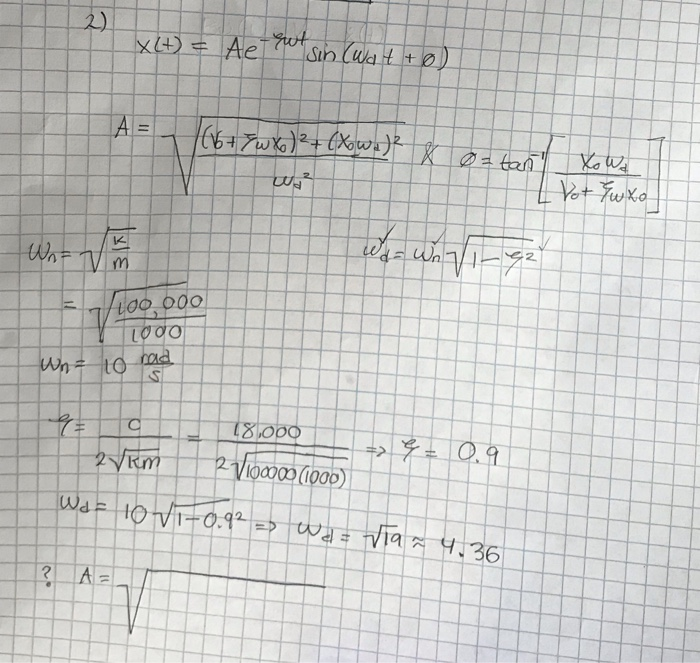 2)
x(t) = Ae^{-ξωt} sin(ω_d t + ø)
A = √(((v₀ + ξωx₀)² + (x₀ω_d)²) / ω_d²) & ø = tan⁻¹[x₀ω_d / (v₀ + ξωx₀)]
ω_n = √(k/m) ω_d = ω_n √(1 - ξ²)
= √(100,000 / 1000)
ω_n = 10 rad/s
ξ = c / (2√km) = 18,000 / (2√100000(1000)) ⇒ ξ = 0.9
ω_d = 10√(1-0.9²) ⇒ ω_d = √19 ≈ 4.36
? A = √